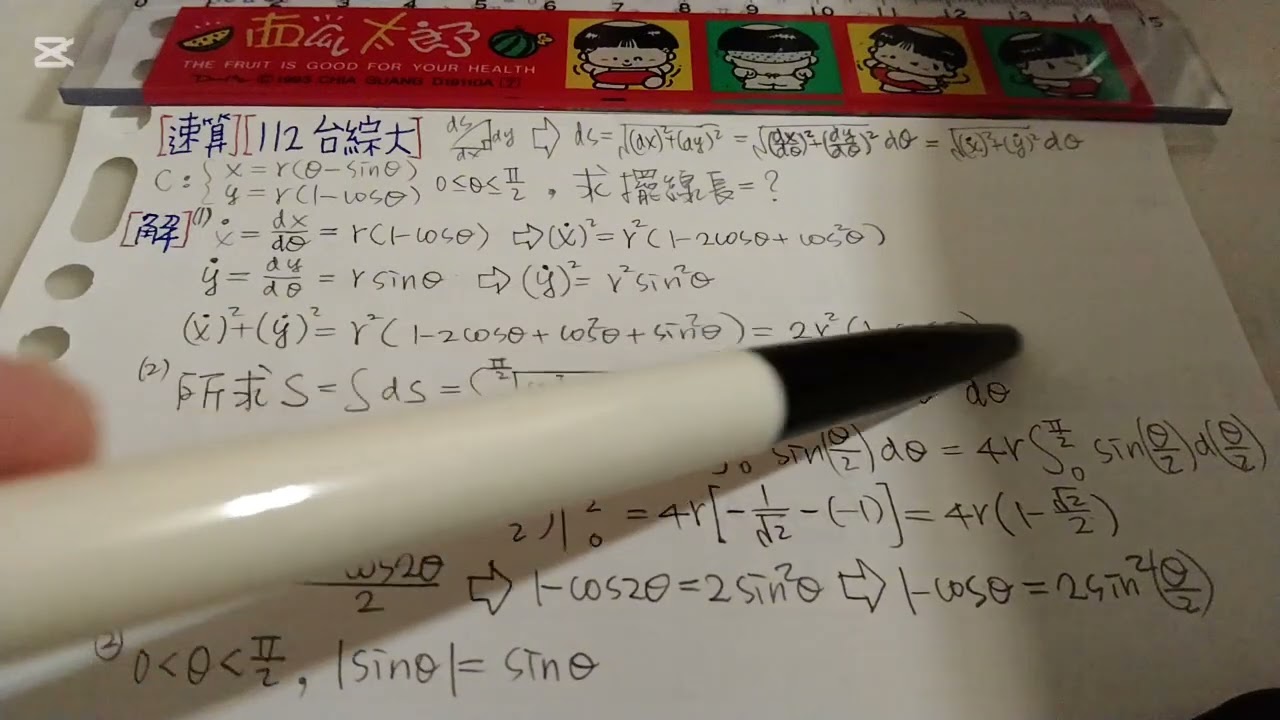 0 5 6 7 8 9 10 11 12 13 14 15
西瓜太郎
THE FRUIT IS GOOD FOR YOUR HEALTH
© 1993 CHIA GUANG D1911OA
[速算][112台綜大] ds dy dx ⇨ ds=√(dx)²+(dy)² = √(dx/dθ)²+(dy/dθ)² dθ = √(ẋ)²+(ẏ)² dθ
C:{ x=r(θ-sinθ)
y=r(1-cosθ) 0≤θ≤π/2 , 求擺線長=?
[解](1) ẋ = dx/dθ = r(1-cosθ) ⇨(ẋ)²=r²(1-2cosθ+cos²θ)
ẏ = dy/dθ = r sinθ ⇨ (ẏ)²= r²sin²θ
(ẋ)²+(ẏ)²= r²(1-2cosθ+cos²θ+sin²θ)= 2r²(1
(2) 所求 S=∫ds=∫ π/2 dθ
0 sin(θ/2)dθ = 4r∫₀^π/2 sin(θ/2)d(θ/2)
2 )|₀ ² = 4r[-1/√2-(-1)]= 4r(1-√2/2)
cos2θ/2 ⇨ 1-cos2θ=2sin²θ ⇨ 1-cosθ=2sin²(θ/2)
(2) 0<θ<π/2, |sinθ|= sinθ